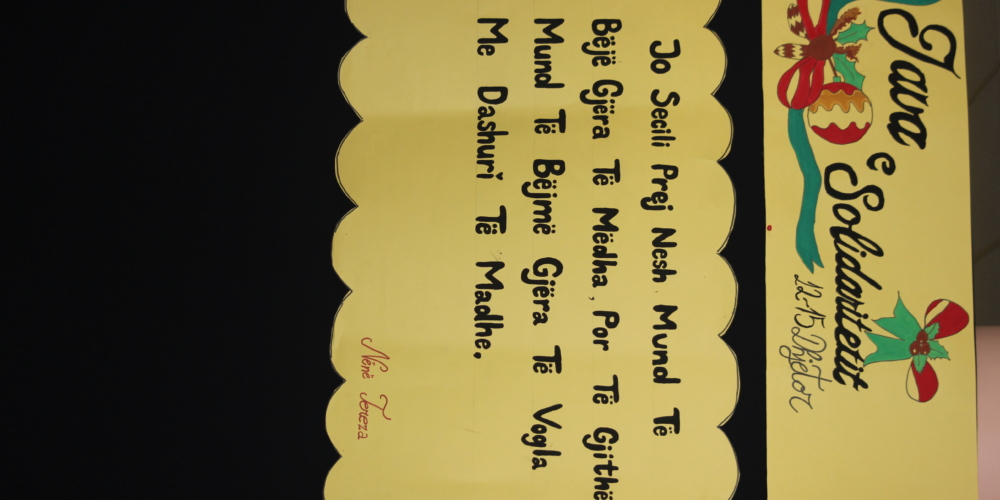 Java e Solidaritetit
12-15 Dhjetor
Jo Secili Prej Nesh Mund Të
Bëjë Gjëra Të Mëdha, Por Të Gjithë
Mund Të Bëjmë Gjëra Të Vogla
Me Dashuri Të Madhe.
Nënë Tereza